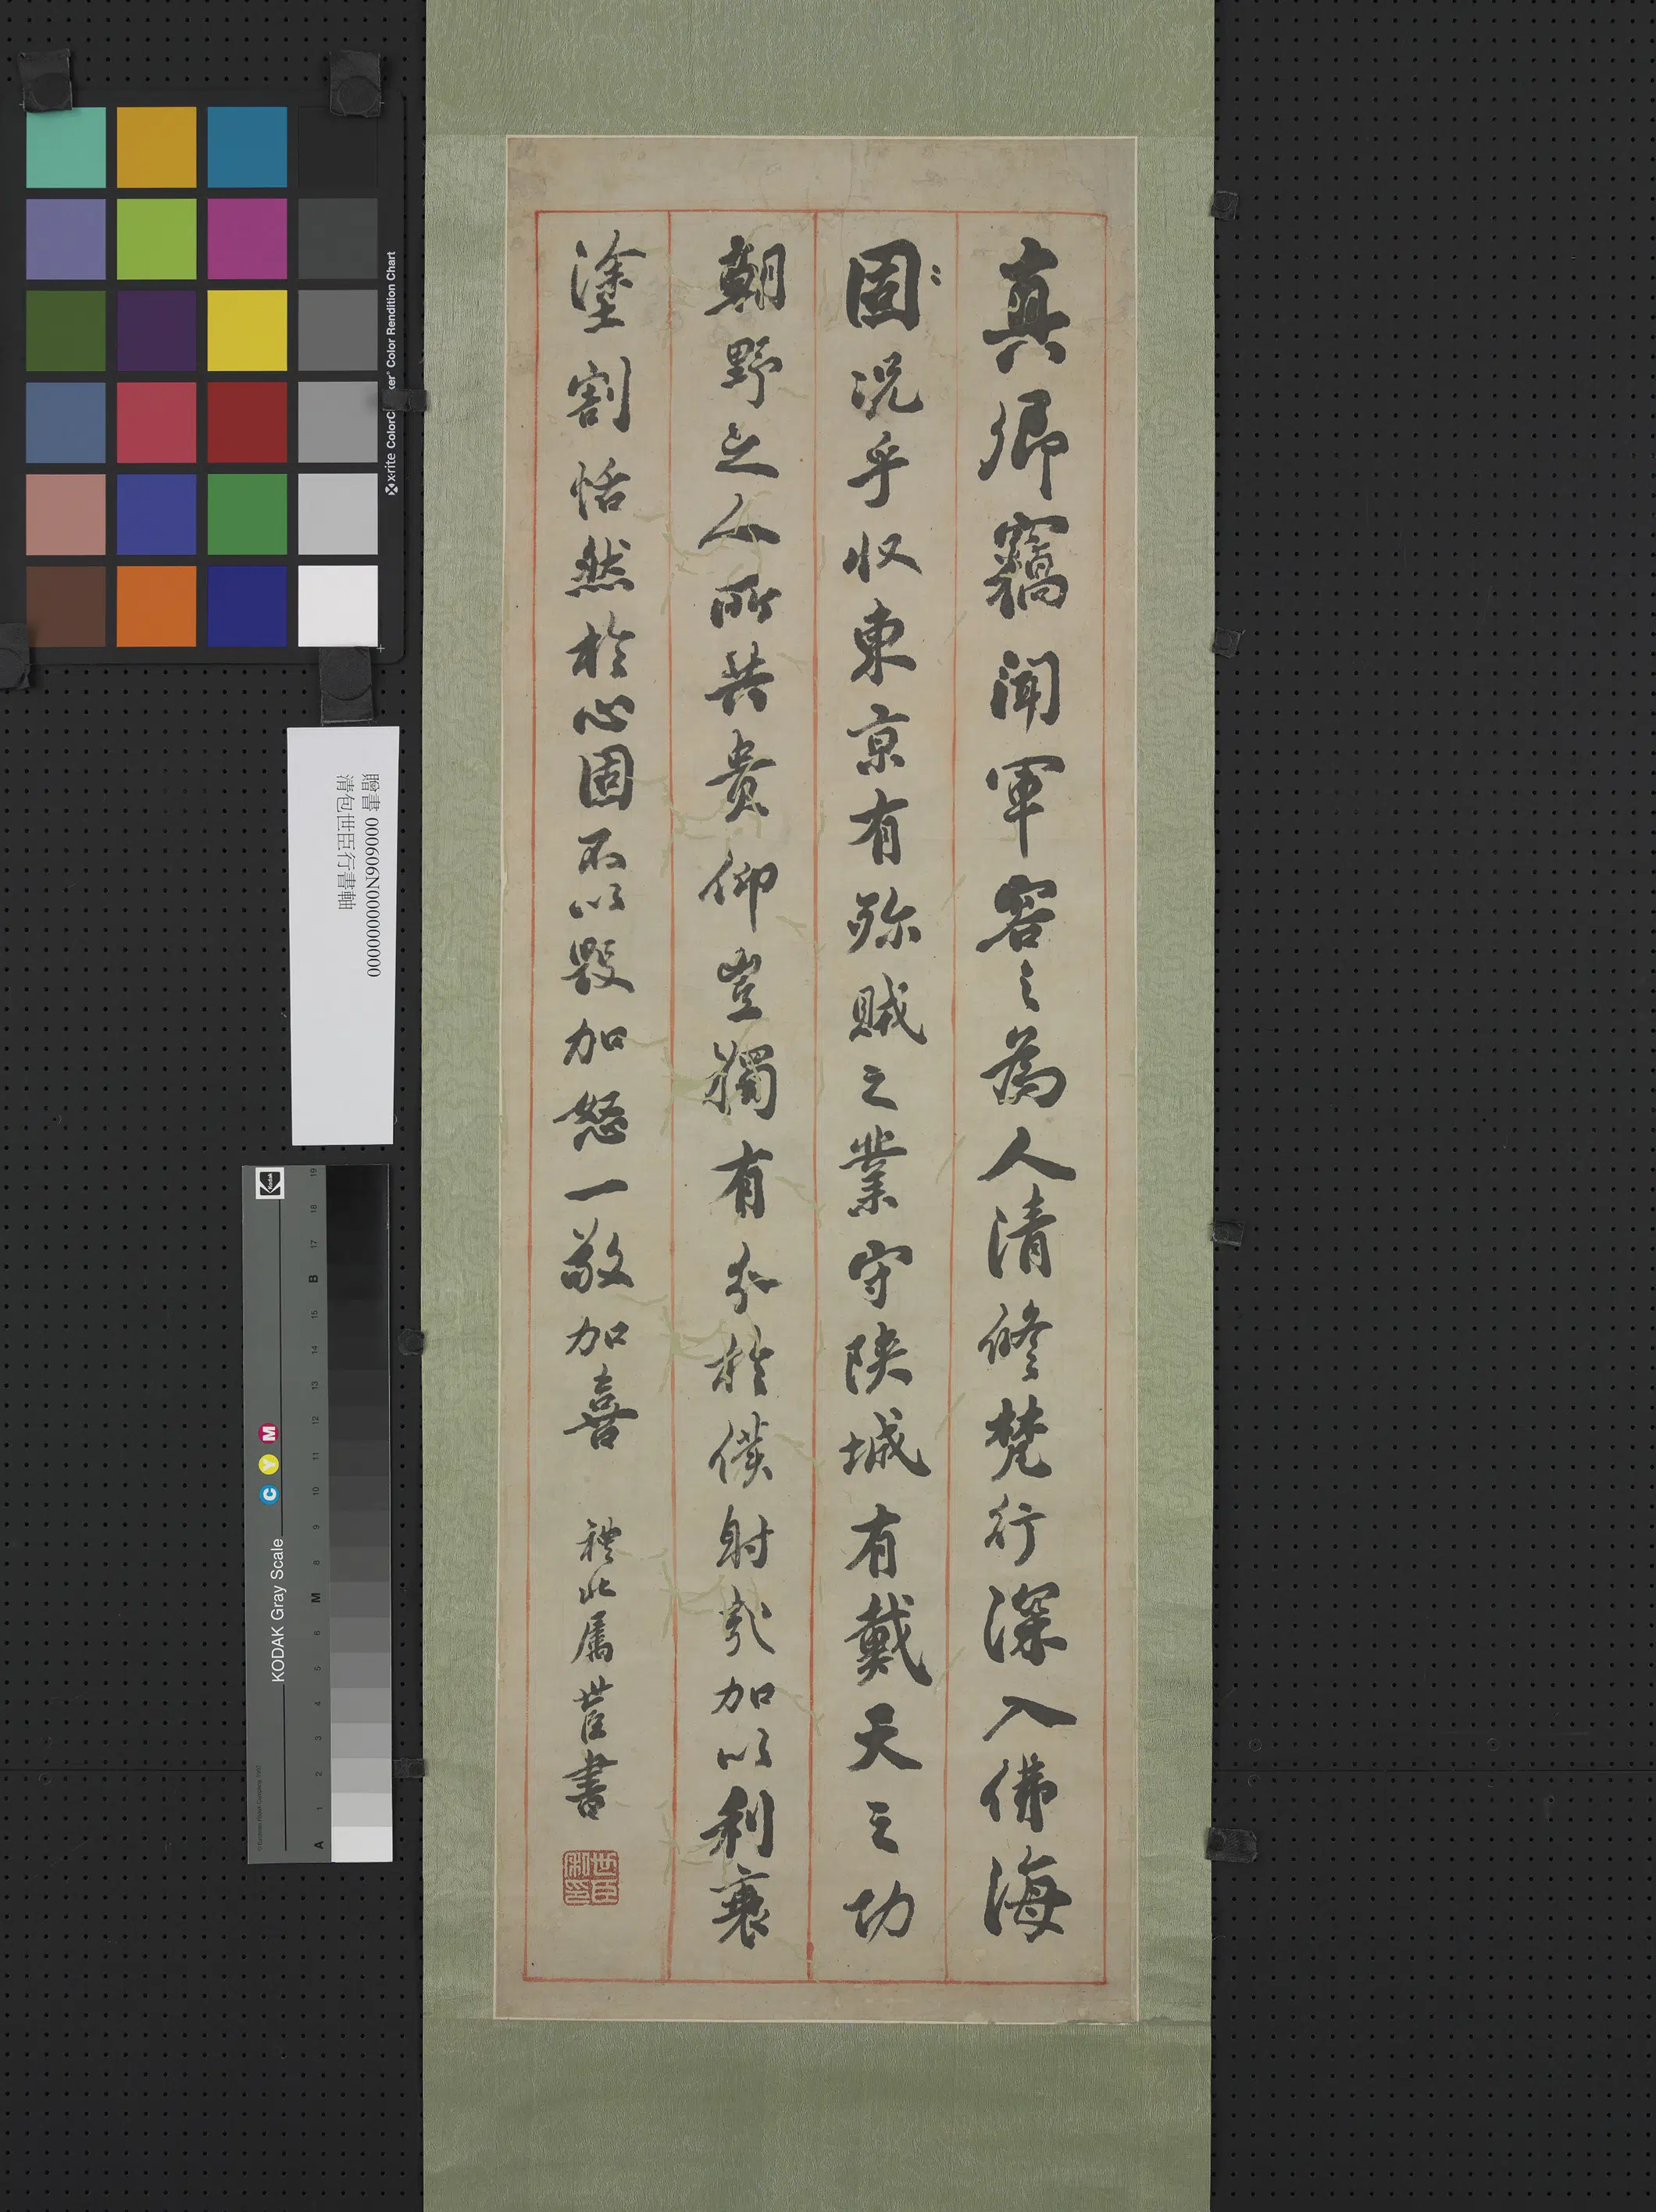 真卿竊聞軍容之為人清修梵行深入佛海
固況乎收東京有殄賊之業守陝城有戴天之功
朝野之人所共貴仰豈獨有分於僕射哉加以利衰
塗割恬然於心固不以毀加怒一敬加喜
禮北屬世臣書
世臣私印
贈書 000609N000000000
清包世臣行書軸
x-rite ColorC
ker Color Rendition Chart
Kodak
KODAK Gray Scale
C Y M
A 1 2 3 4 5 6 M 8 9 10 11 12 13 14 15 B 17 18 19